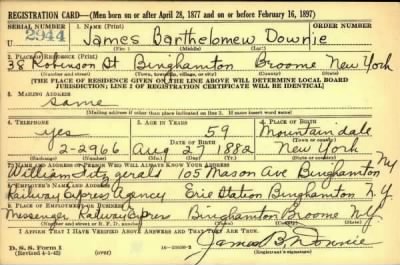 REGISTRATION CARD—(Men born on or after April 28, 1877 and on or before February 16, 1897)
SERIAL NUMBER 1. NAME (Print) ORDER NUMBER
U 2944 James Bartholomew Downie
(First) (Middle) (Last)
2. PLACE OF RESIDENCE (Print)
38 Robinson St Binghamton Broome New York
(Number and street) (Town, township, village, or city) (County) (State)
[THE PLACE OF RESIDENCE GIVEN ON THE LINE ABOVE WILL DETERMINE LOCAL BOARD
JURISDICTION; LINE 2 OF REGISTRATION CERTIFICATE WILL BE IDENTICAL]
3. MAILING ADDRESS
same
[Mailing address if other than place indicated on line 2. If same insert word same]
4. TELEPHONE 5. AGE IN YEARS 6. PLACE OF BIRTH
yes 59 Mountaindale
DATE OF BIRTH (Town or county)
2-2966 Aug 27 1882 New York
(Exchange) (Number) (Mo.) (Day) (Yr.) (State or country)
7. NAME AND ADDRESS OF PERSON WHO WILL ALWAYS KNOW YOUR ADDRESS
William Fitzgerald 105 Mason Ave Binghamton NY
8. EMPLOYER'S NAME AND ADDRESS
Railway Express Agency Erie Station Binghamton N.Y.
9. PLACE OF EMPLOYMENT OR BUSINESS
Messenger Railway Express Binghamton Broome N.Y.
(Number and street or R. F. D. number) (Town) (County) (State)
I AFFIRM THAT I HAVE VERIFIED ABOVE ANSWERS AND THAT THEY ARE TRUE.
James B Downie
D. S. S. Form 1
(Revised 4-1-42) (over)